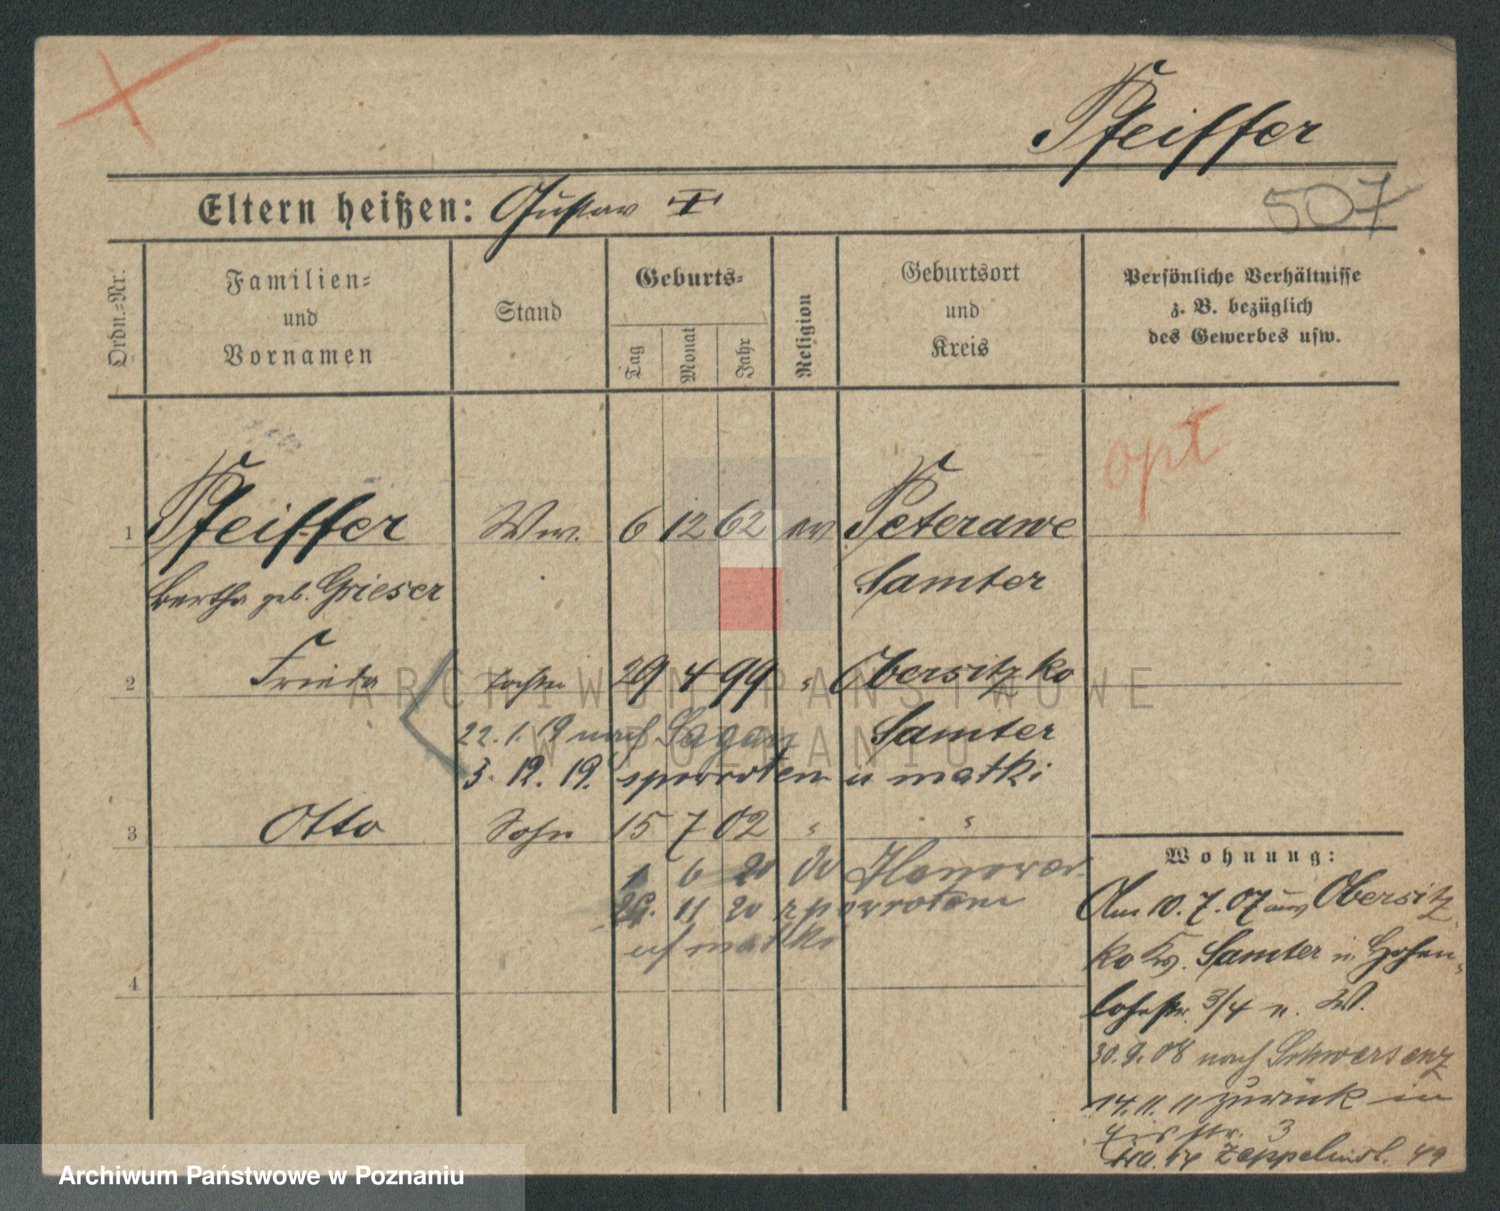 Pfeiffer
507
Eltern heißen: Gustav I
Ordn.=Nr.
Familien=
und
Vornamen
Stand
Geburts=
Tag
Monat
Jahr
Religion
Geburtsort
und
Kreis
Persönliche Verhältnisse
z. B. bezüglich
des Gewerbes usw.
opt
1 Pfeiffer Ww. 6 12 62 ev Peterawe
Bertha geb. Grieser Samter
2 Frieda Tochter 29 4 99 " Obersitzko
22. 1. 19 nach Sagan Samter
3. 12. 19. spowrotem u matki
3 Otto Sohn 15 7 02 " "
1 6 20 do Hanower
26. 11 20 spowrotem
matki
4
Wohnung:
Am 10. 7. 07 aus Obersitz
ko Kr. Samter n. Hohen-
lohestr. 3/4 n. W.
30. 9. 08 nach Schwersenz
14. 11. 11 zurück in
str. 3
Zeppelinstr. 49
ARCHIWUM PAŃSTWOWE
W POZNANIU
Archiwum Państwowe w Poznaniu